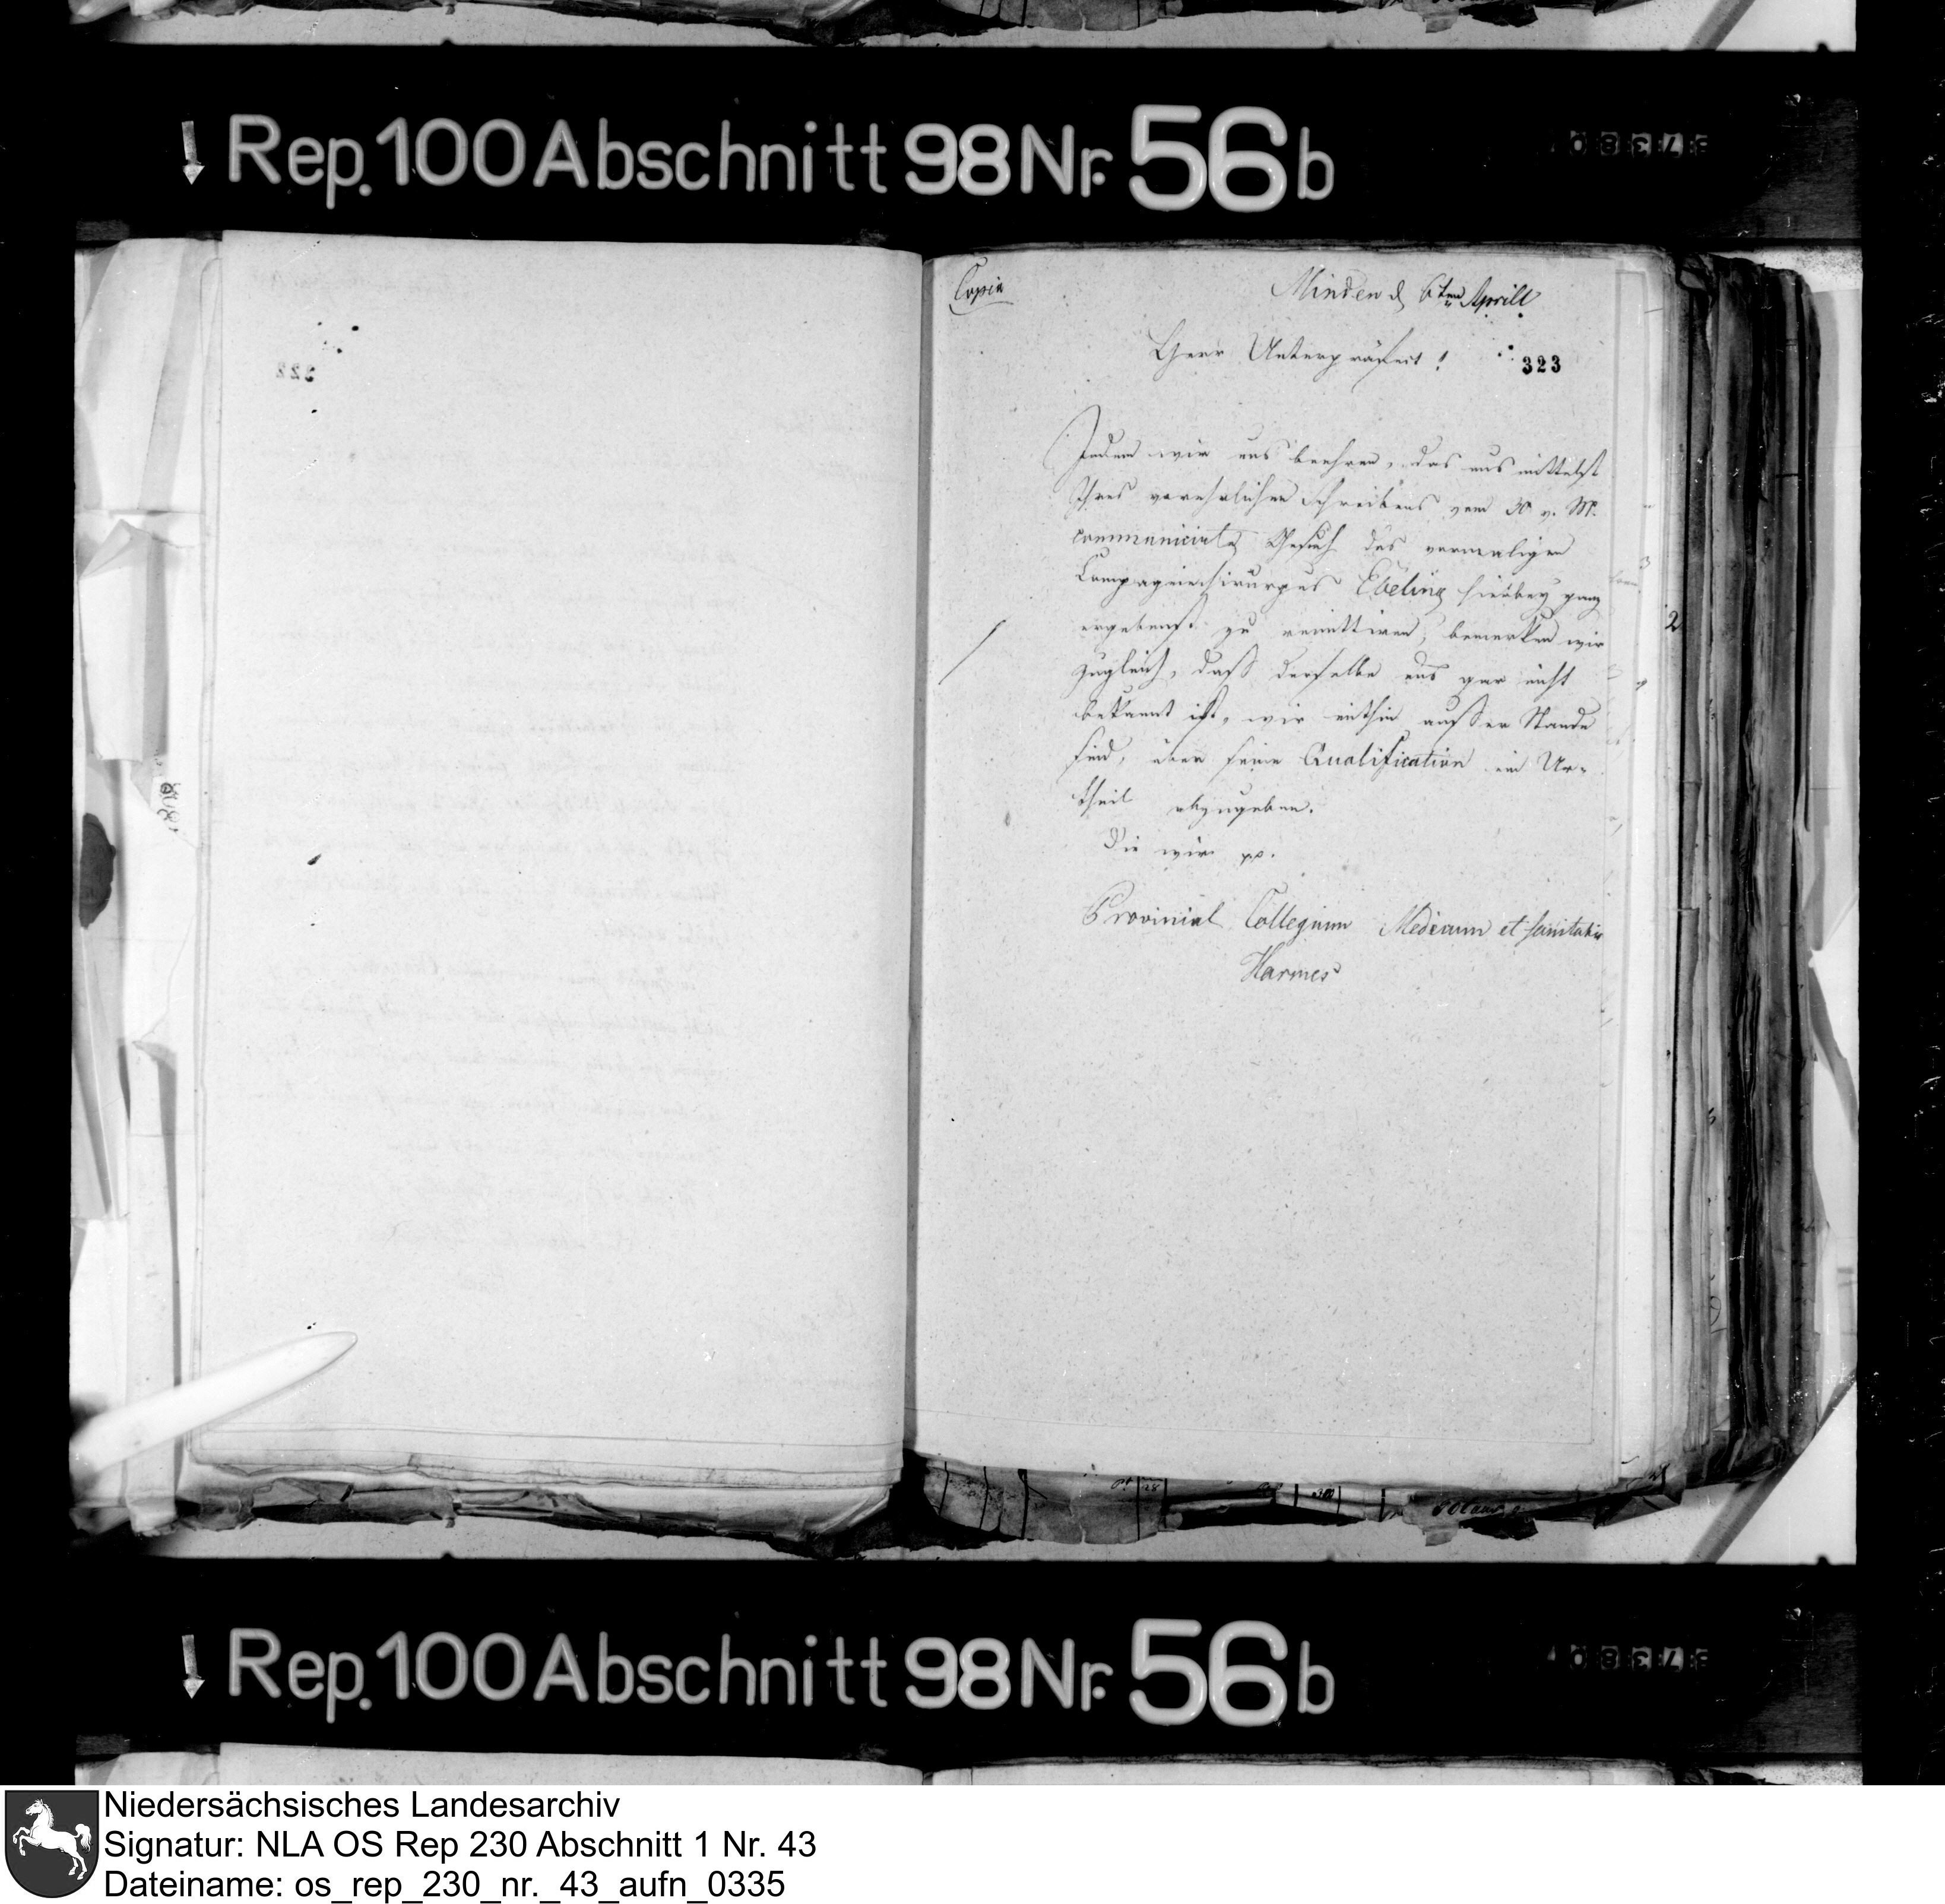 Rep. 100 Abschnitt 98 Nr. 56 b
Copia
Minden d 6ten Aprill
Herr Unterpräfect!
323
Indem wir uns beehren, das uns mittelst
Ihres verehrlichen Schreibens vom 30 v. M.
communicirte Gesuch des vormaligen
Compagniechirurgus Ebeling hierbey ganz
ergebenst zu remittiren, bemerken wir
zugleich, daß derselbe uns gar nicht
bekannt ist, wir mithin außer Stande
sind, über seine Qualification ein Ur-
theil abzugeben.
Die wir pp.
Provinial Collegium Medicum et sanitatis
Harmes
2
Rep. 100 Abschnitt 98 Nr. 56 b
Niedersächsisches Landesarchiv
Signatur: NLA OS Rep 230 Abschnitt 1 Nr. 43
Dateiname: os_rep_230_nr._43_aufn_0335